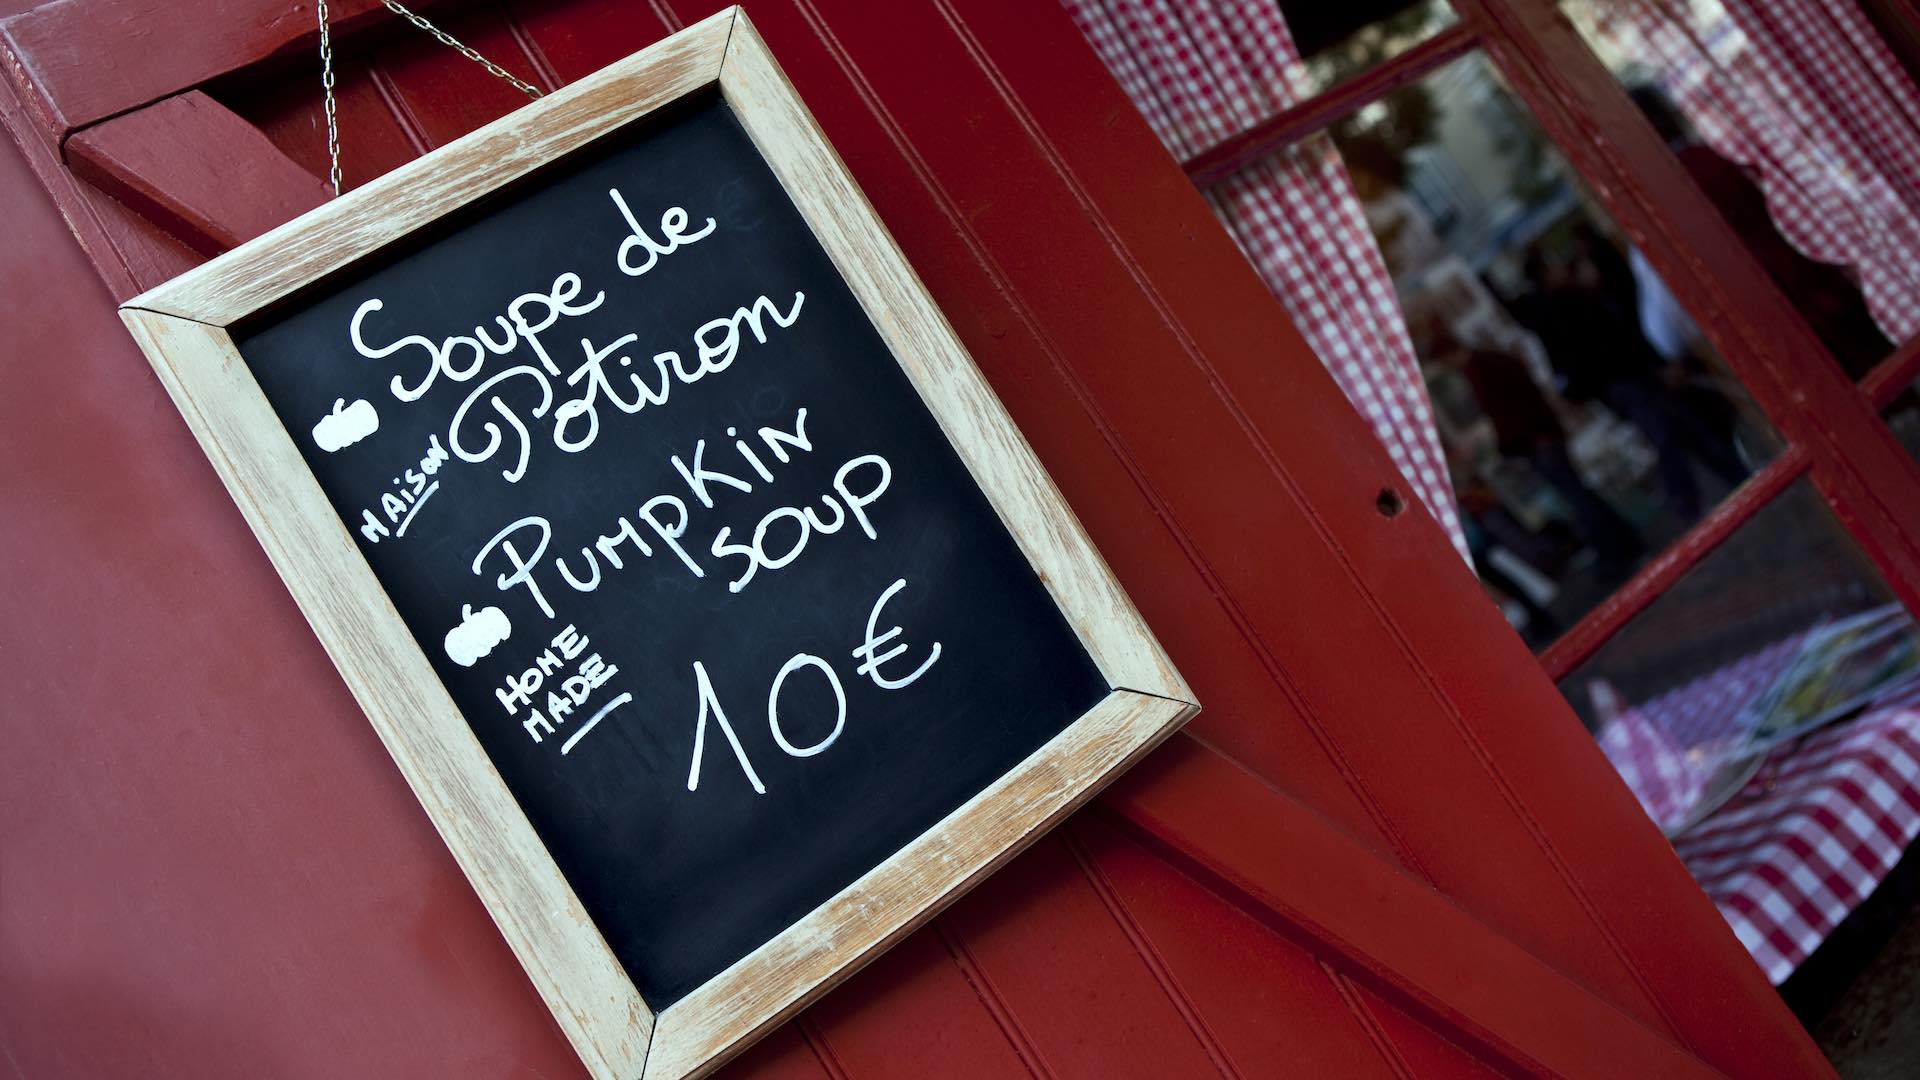 Soupe de
Potiron
MAISON
PUMPKIN
SOUP
HOME
MADE
10€